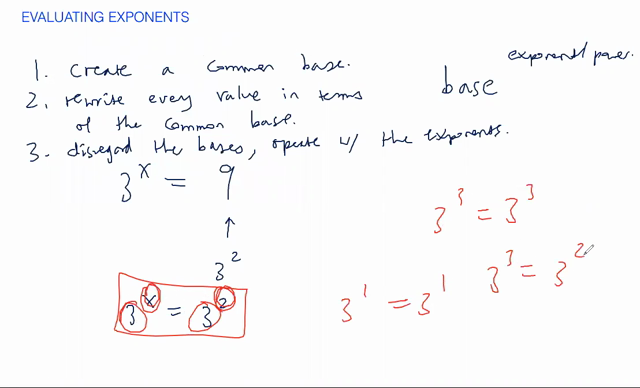 EVALUATING EXPONENTS
1. Create a common base.
2. rewrite every value in terms
of the common base.
3. disregard the bases, operate w/ the exponents.
base exponent/power.
3^x = 9
↑
3^2
3^x = 3^2
3^3 = 3^3
3^1 = 3^1
3^3 = 3^2